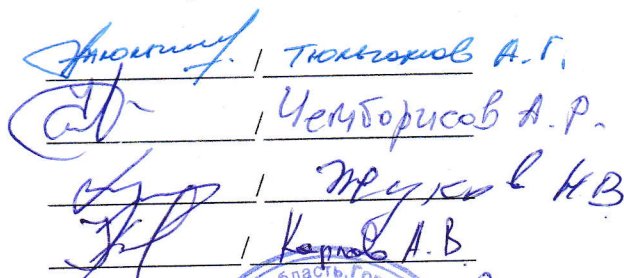 / Тюльганов А.Г.
/ Чемборисов А.Р.
/ Жуков НВ
/ Карпов А.В
область, Гор